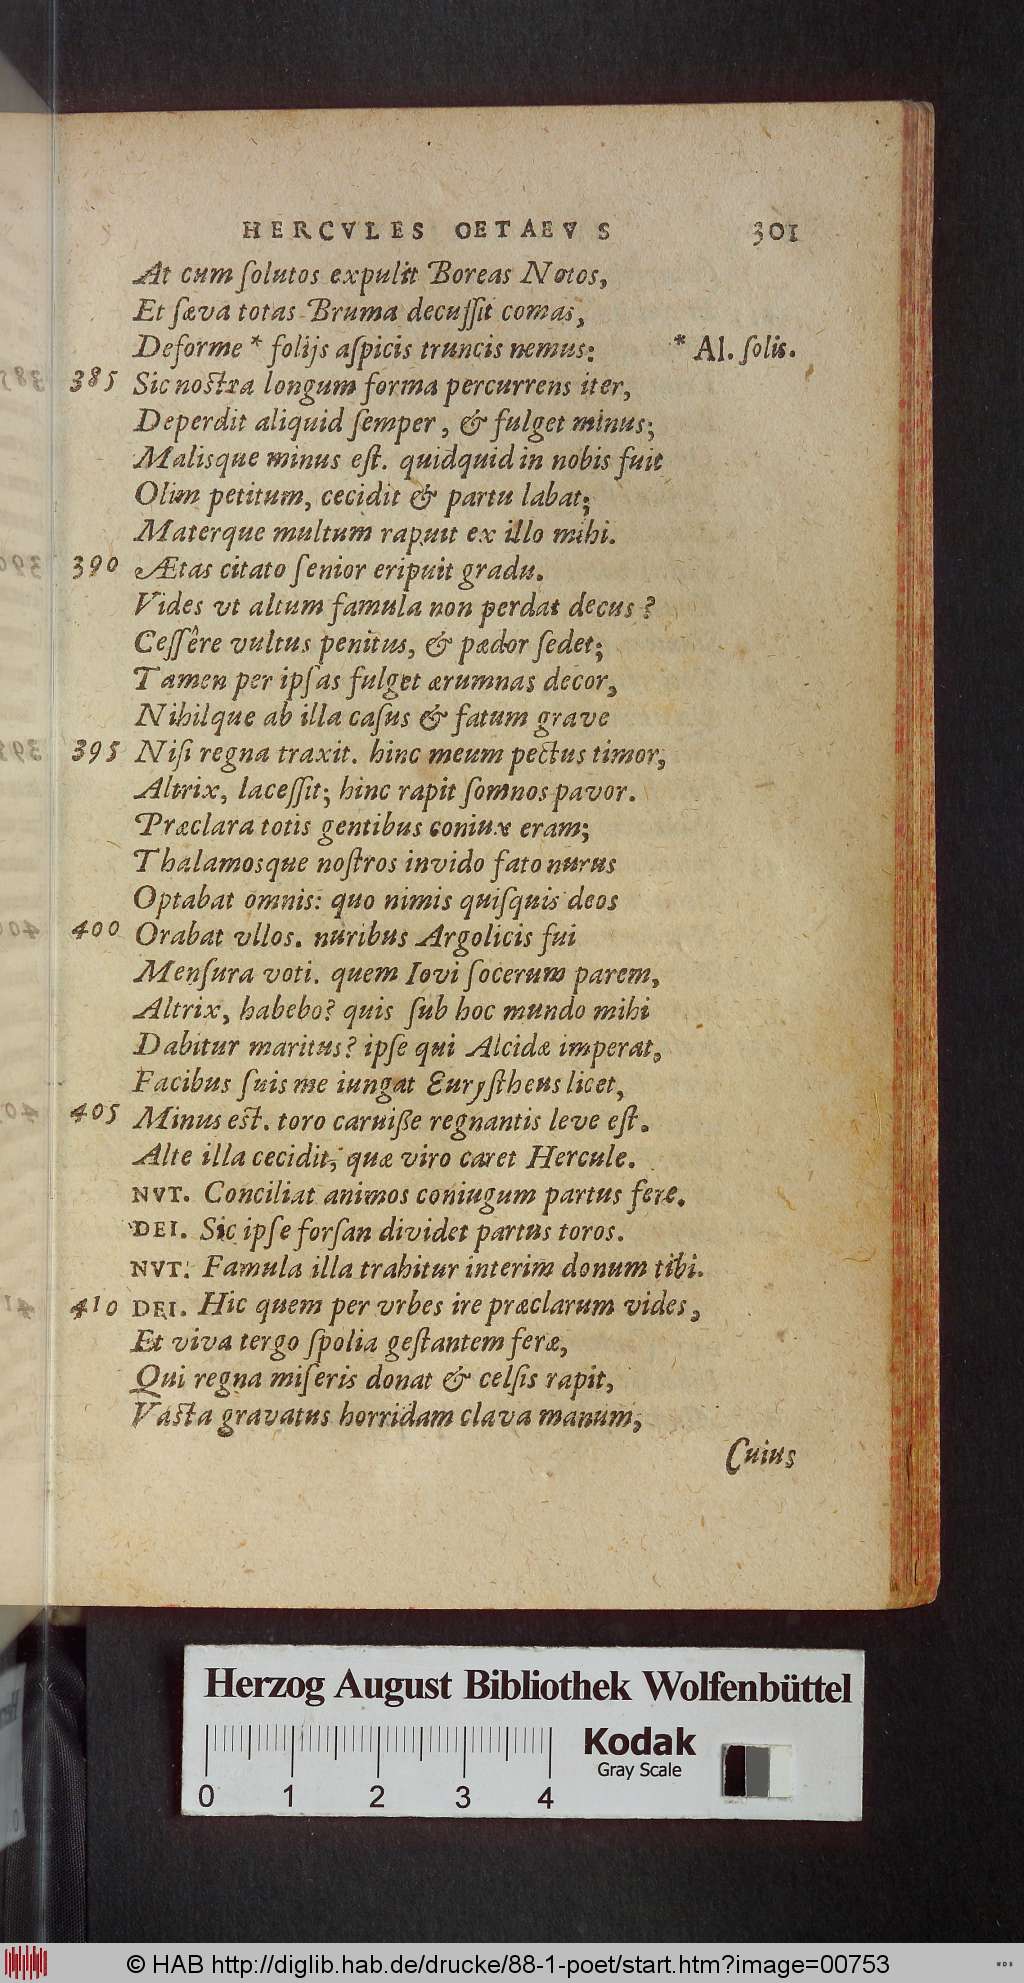 HERCVLES OETAEVS 301
At cum ſolutos expulit Boreas Notos,
Et ſæva totas Bruma decuſſit comas,
Deforme * folijs aſpicis truncis nemus: * Al. ſolis.
385 Sic noſtra longum forma percurrens iter,
Deperdit aliquid ſemper, & fulget minus;
Malisque minus eſt. quidquid in nobis fuit
Olim petitum, cecidit & partu labat;
Materque multum rapuit ex illo mihi.
390 Ætas citato ſenior eripuit gradu.
Vides vt altum famula non perdat decus?
Ceſſêre vultus penitus, & pædor ſedet;
Tamen per ipſas fulget ærumnas decor,
Nihilque ab illa caſus & fatum grave
395 Niſi regna traxit. hinc meum pectus timor,
Altrix, laceſſit; hinc rapit ſomnos pavor.
Præclara totis gentibus coniux eram;
Thalamosque noſtros invido fato nurus
Optabat omnis: quo nimis quiſquis deos
400 Orabat vllos. nuribus Argolicis fui
Menſura voti. quem Iovi ſocerum parem,
Altrix, habebo? quis ſub hoc mundo mihi
Dabitur maritus? ipſe qui Alcidæ imperat,
Facibus ſuis me iungat Euryſtheus licet,
405 Minus eſt. toro caruiße regnantis leve eſt.
Alte illa cecidit, quæ viro caret Hercule.
NVT. Conciliat animos coniugum partus fere.
DEI. Sic ipſe forſan dividet partus toros.
NVT. Famula illa trahitur interim donum tibi.
410 DEI. Hic quem per vrbes ire præclarum vides,
Et viva tergo ſpolia geſtantem feræ,
Qui regna miſeris donat & celſis rapit,
Vaſta gravatus horridam clava manum,
Cuius
Herzog August Bibliothek Wolfenbüttel
Kodak
Gray Scale
0 1 2 3 4
© HAB http://diglib.hab.de/drucke/88-1-poet/start.htm?image=00753